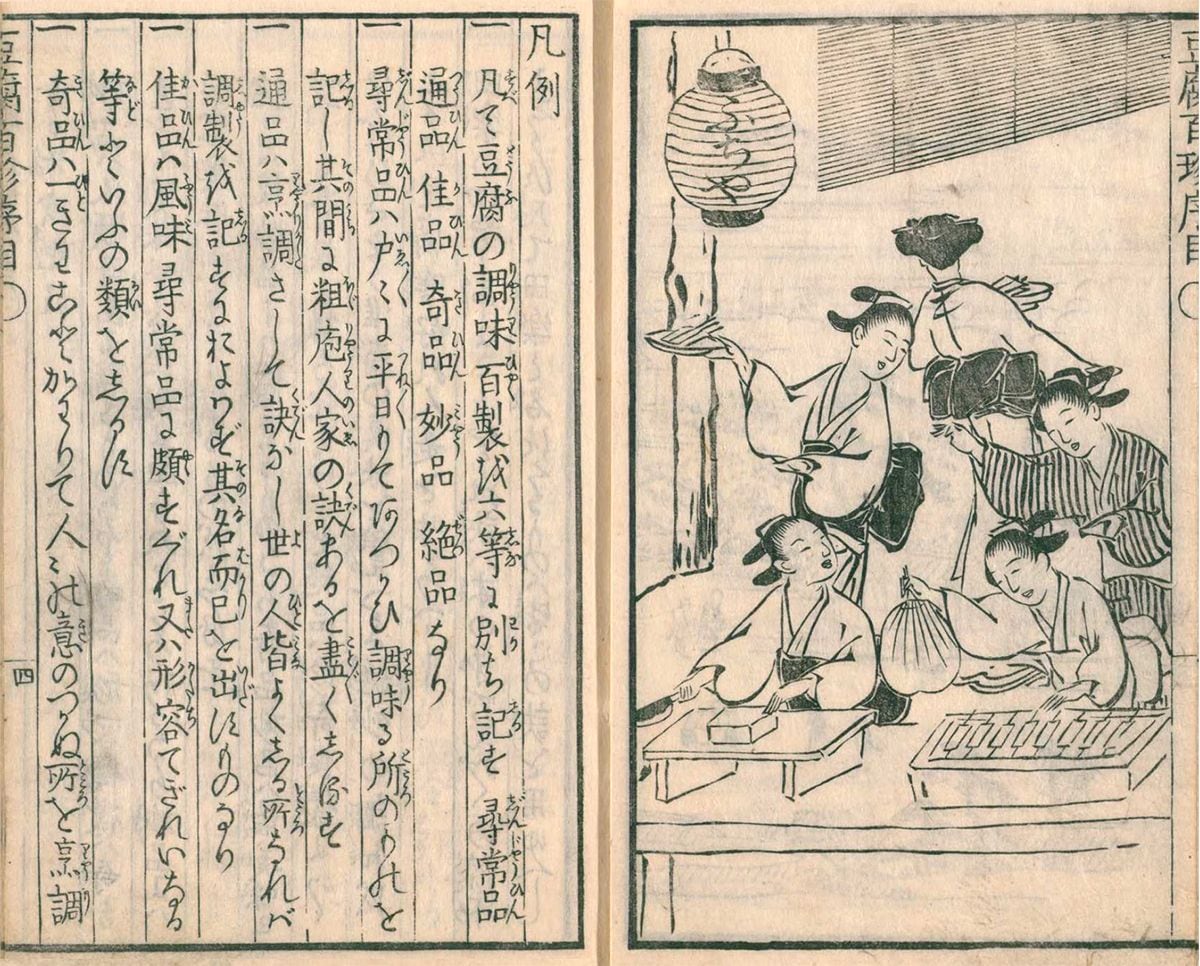 豆腐百珍序目
ふぢや
凡例
一 凡て豆腐の調味百製を六等に別ち記す 尋常品
通品 佳品 奇品 妙品 絶品なり
一 尋常品ハ戸々に平日にてあつかひ調味る所のものを
記し其間に粗庖人家の訣あるを盡くしるす
一 通品ハ烹調さして訣なし世の人皆よくしる所なれバ
調製を記すにおよばず其名而已を出すものなり
一 佳品ハ風味尋常品に頗すぐれ又ハ形容てぎれいなる
等といふの類をしるす
一 奇品ハ一きわことかわりて人々の意のつかぬ所を烹調
豆腐百珍序目
四